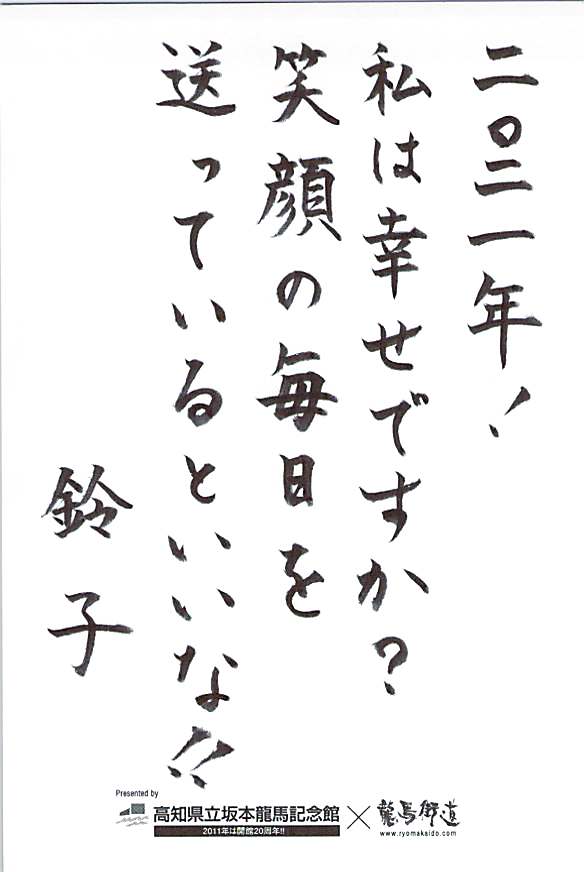 二〇二一年!
私は幸せですか?
笑顔の毎日を
送っているといいな!!
鈴子
Presented by
高知県立坂本龍馬記念館×龍馬街道
2011年は開館20周年!!
www.ryomakaido.com